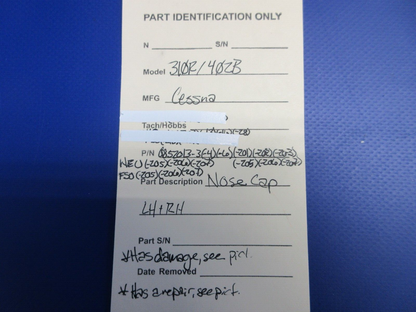 PART IDENTIFICATION ONLY
N S/N
Model 310R/402B
MFG Cessna
Tach/Hobbs
P/N (-4)(-6)(-201)(-202)(-203)
NEU(-205)(-206)(-207) (-205)(-206)(-207)
FSO(-205)(-206)(-207)
Part Description Nose Cap
LH+RH
Part S/N
*Has damage, see pic.
Date Removed
*Has a repair, see pic.